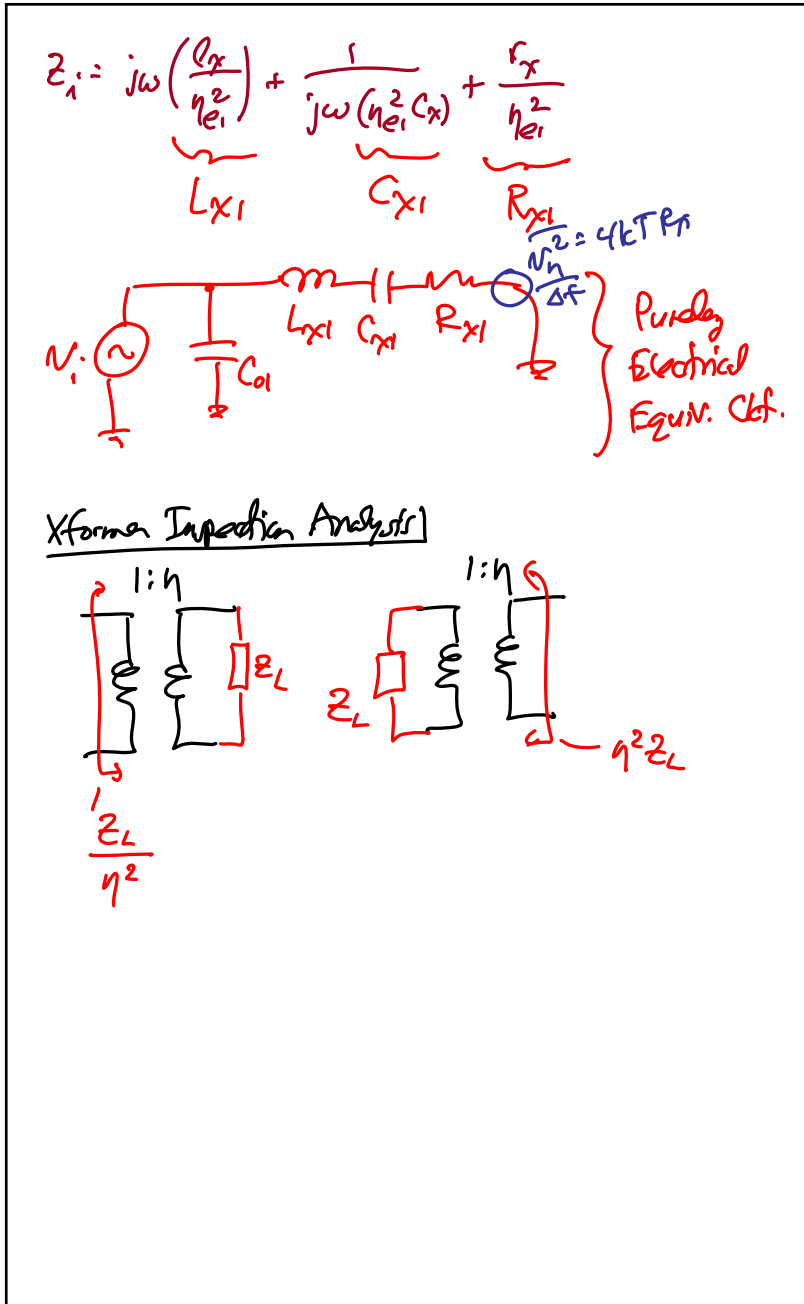 Z_i = jω(l_x/η_{e1}^2) + 1/(jω(η_{e1}^2 C_x)) + r_x/η_{e1}^2
L_{x1} C_{x1} R_{x1}
\overline{v_n^2}/Δf = 4kTR_{x1}
L_{x1} C_{x1} R_{x1}
v_i C_{o1}
Purely
Electrical
Equiv. Ckt.
Xformer Inspection Analysis
1:η 1:η
Z_L Z_L
η^2 Z_L
Z_L/η^2